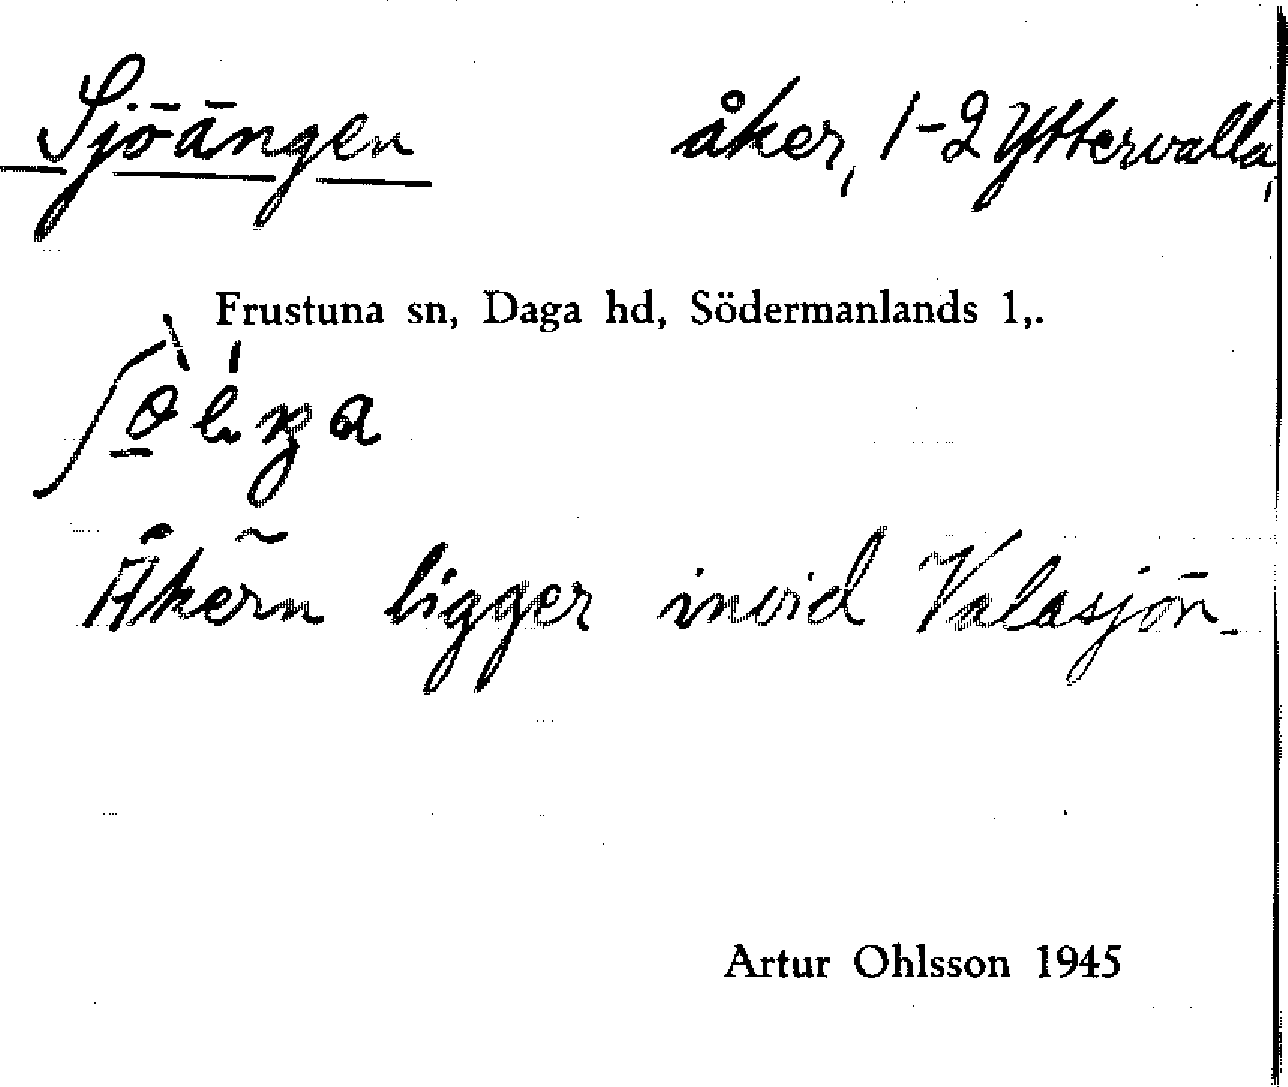 Sjöängen åker, 1-2 Yttervalla,
Frustuna sn, Daga hd, Södermanlands l,.
Åkern ligger invid Valasjön.
Artur Ohlsson 1945